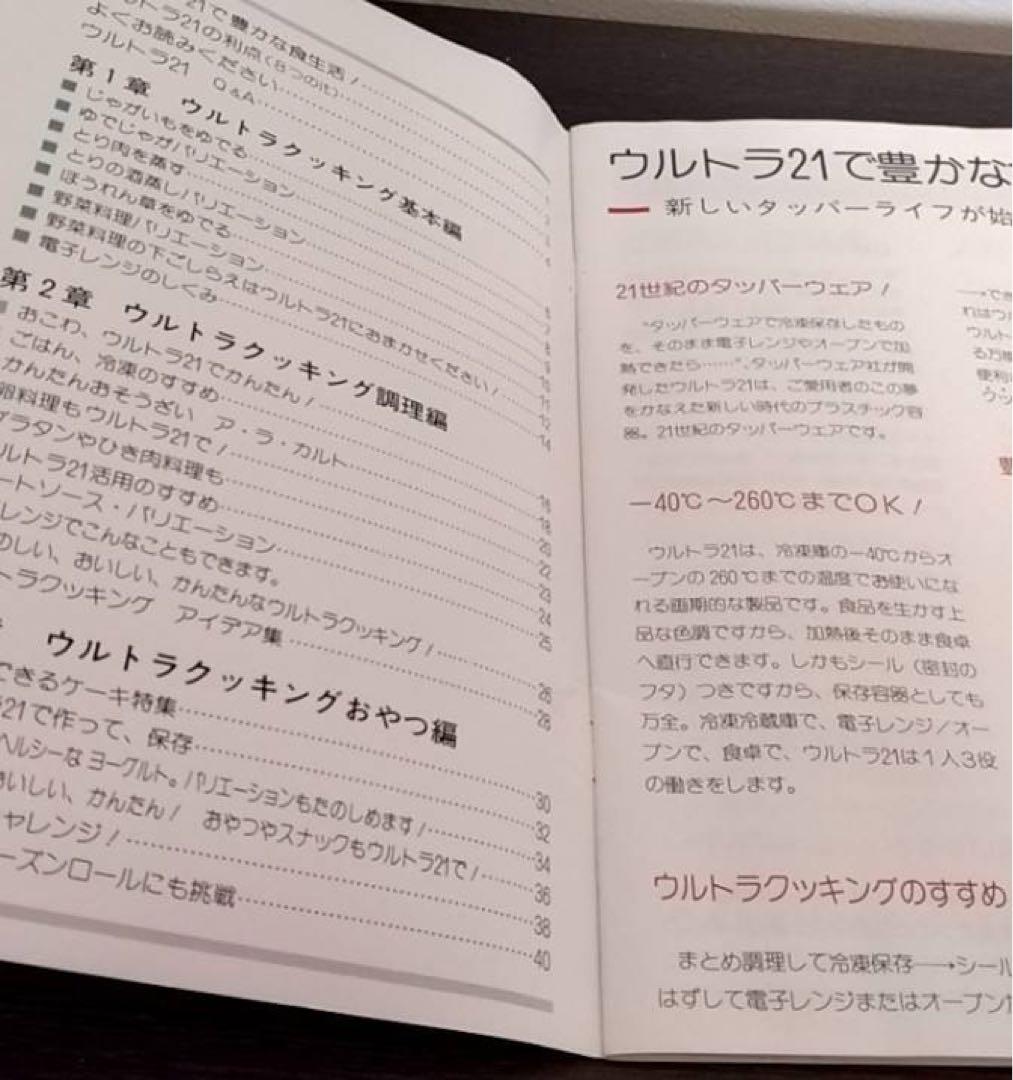 21で豊かな食生活!
ルトラ21の利点(8つのit)
よくお読みください
ウルトラ21 Q&A
第1章 ウルトラクッキング基本編
■ じゃがいもをゆでる
■ ゆでじゃがバリエーション
■ とり肉を蒸す
■ とりの酒蒸しバリエーション
■ ほうれん草をゆでる
■ 野菜料理バリエーション
■ 野菜料理の下ごしらえはウルトラ21におまかせください!
■ 電子レンジのしくみ
第2章 ウルトラクッキング調理編
おこわ、ウルトラ21でかんたん!
ごはん、冷凍のすすめ 16
かんたんおそうざい ア・ラ・カルト 18
卵料理もウルトラ21で! 20
グラタンやひき肉料理も 22
ルトラ21活用のすすめ 23
ートソース・バリエーション 24
レンジでこんなこともできます。 25
のしい、おいしい、かんたんなウルトラクッキング! 26
トラクッキング アイデア集 28
ウルトラクッキングおやつ編
できるケーキ特集 30
21で作って、保存 32
ヘルシーなヨーグルト。バリエーションもたのしめます! 34
おいしい、かんたん! おやつやスナックもウルトラ21で! 36
ャレンジ! 38
ーズンロールにも挑戦 40
ウルトラ21で豊かな
新しいタッパーライフが始
21世紀のタッパーウェア!
"タッパーウェアで冷凍保存したもの
を、そのまま電子レンジやオーブンで加
熱できたら……"、タッパーウェア社が開
発したウルトラ21は、ご愛用者のこの夢
をかなえた新しい時代のプラスチック容
器。21世紀のタッパーウェアです。
−40℃〜260℃までOK!
ウルトラ21は、冷凍庫の−40℃からオ
ーブンの260℃までの温度でお使いにな
れる画期的な製品です。食品を生かす上
品な色調ですから、加熱後そのまま食卓
へ直行できます。しかもシール(密封の
フタ)つきですから、保存容器としても
万全。冷凍冷蔵庫で、電子レンジ/オー
ブンで、食卓で、ウルトラ21は1人3役
の働きをします。
ウルトラクッキングのすすめ
まとめ調理して冷凍保存─→シール
はずして電子レンジまたはオーブンか
─→でき
れはウル
ウルト
る万
便利
クッ